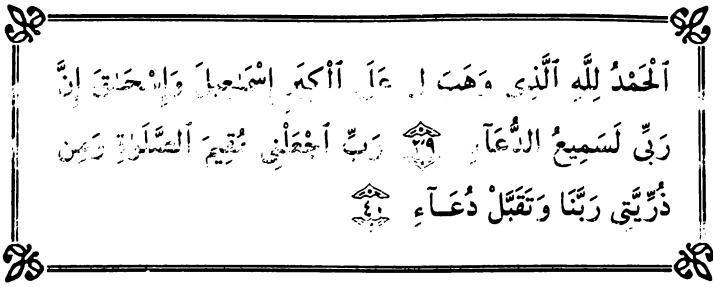 ٱلْحَمْدُ لِلَّهِ ٱلَّذِى وَهَبَ لِى عَلَى ٱلْكِبَرِ إِسْمَٰعِيلَ وَإِسْحَٰقَ إِنَّ
رَبِّى لَسَمِيعُ الدُّعَآءِ ٣٩ رَبِّ ٱجْعَلْنِى مُقِيمَ ٱلصَّلَوٰةِ وَمِن
ذُرِّيَّتِى رَبَّنَا وَتَقَبَّلْ دُعَآءِ ٤٠